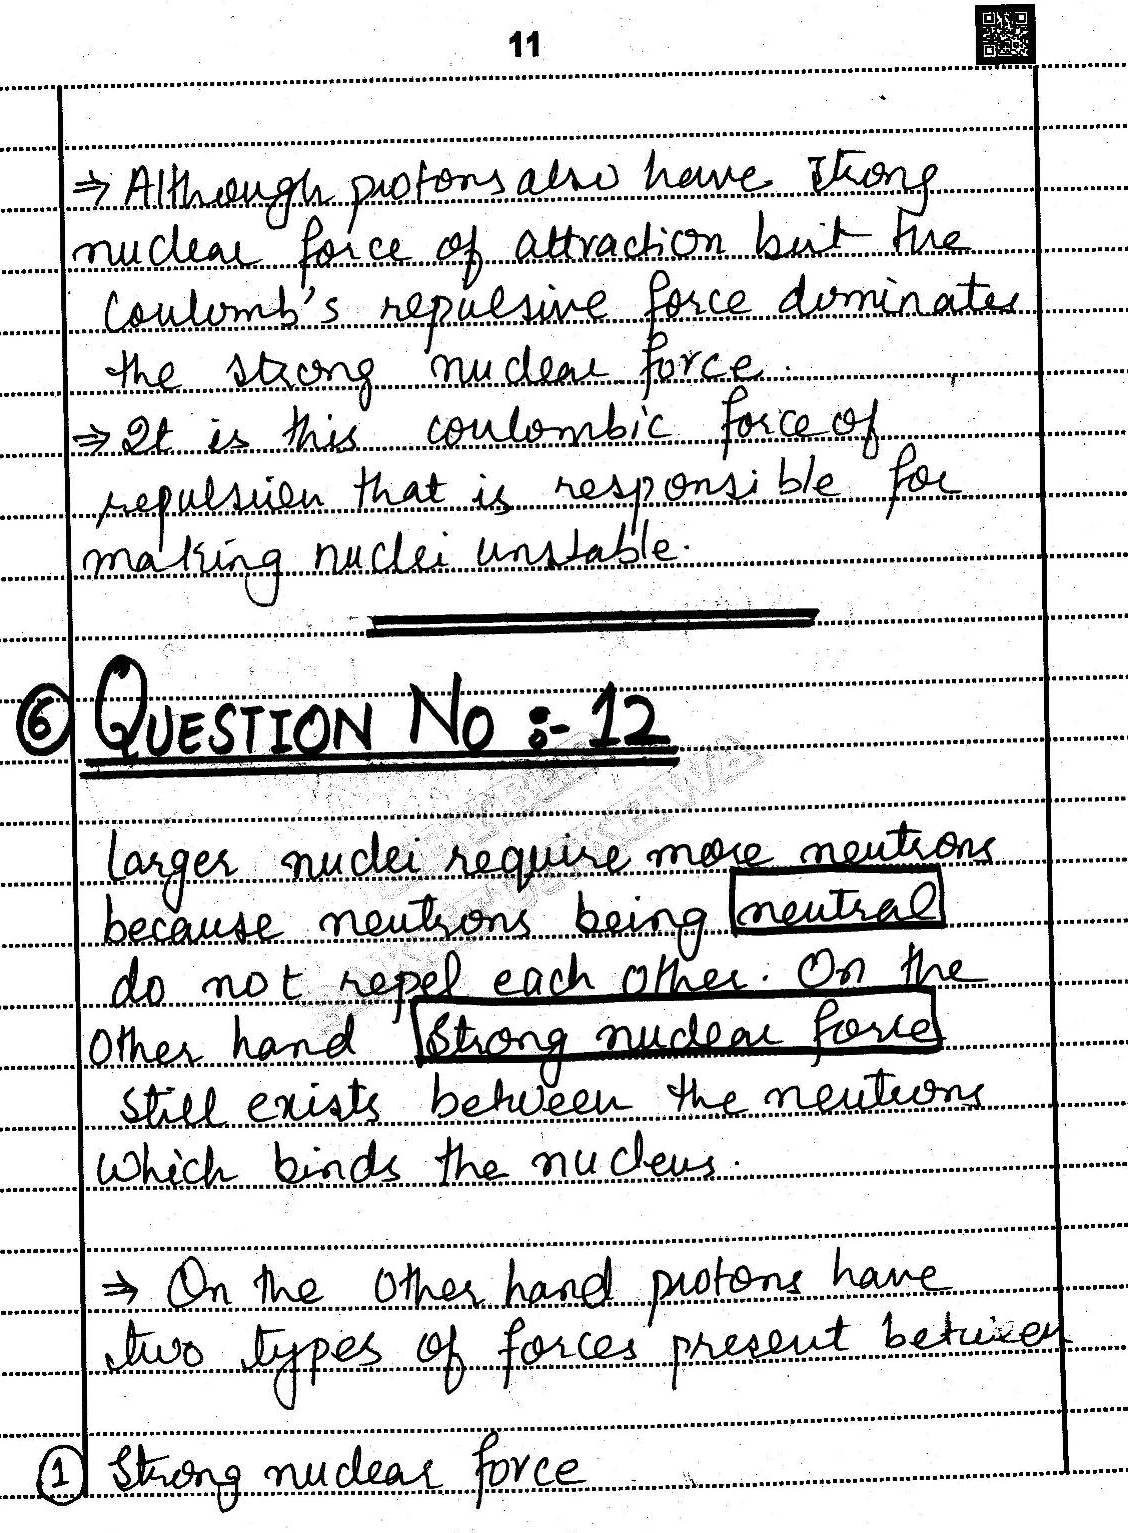 11
⇒ Although protons also have strong
nuclear force of attraction but the
Coulomb's repulsive force dominates
the strong nuclear force.
⇒ It is this coulombic force of
repulsion that is responsible for
making nuclei unstable.
6 QUESTION NO :- 12
Larger nuclei require more neutrons
because neutrons being neutral
do not repel each other. On the
other hand strong nuclear force
still exists between the neutrons
which binds the nucleus.
⇒ On the other hand protons have
two types of forces present between
1 Strong nuclear force